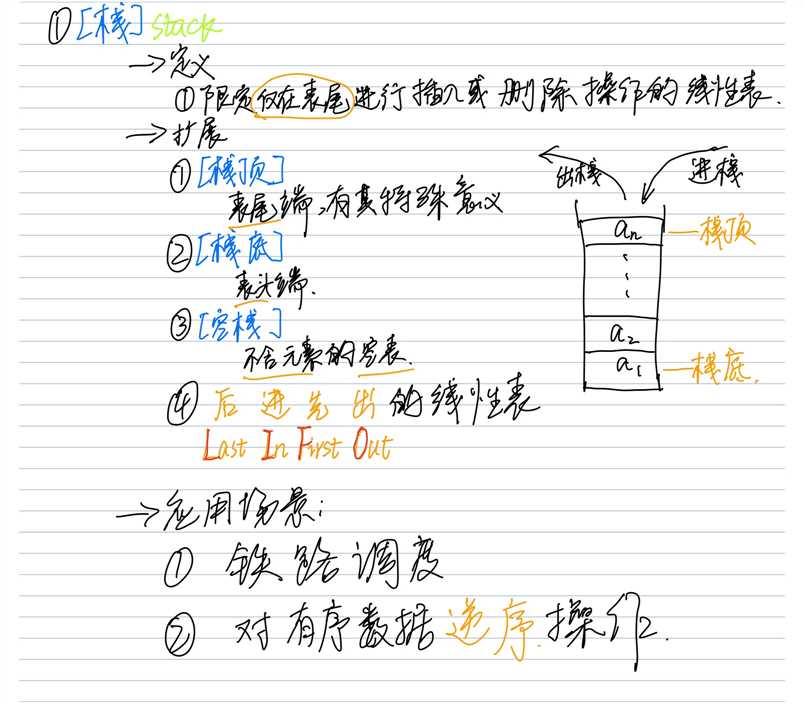 ① [栈] stack
→定义
①限定仅在表尾进行插入或删除操作的线性表.
→扩展
① [栈顶]
表尾端,有其特殊意义
② [栈底]
表头端.
③ [空栈]
不含元素的空表.
④ 后进先出的线性表
Last In First Out
出栈 进栈
an —栈顶
a2
a1 —栈底.
→应用场景:
① 铁路调度
② 对有序数据逆序操作.